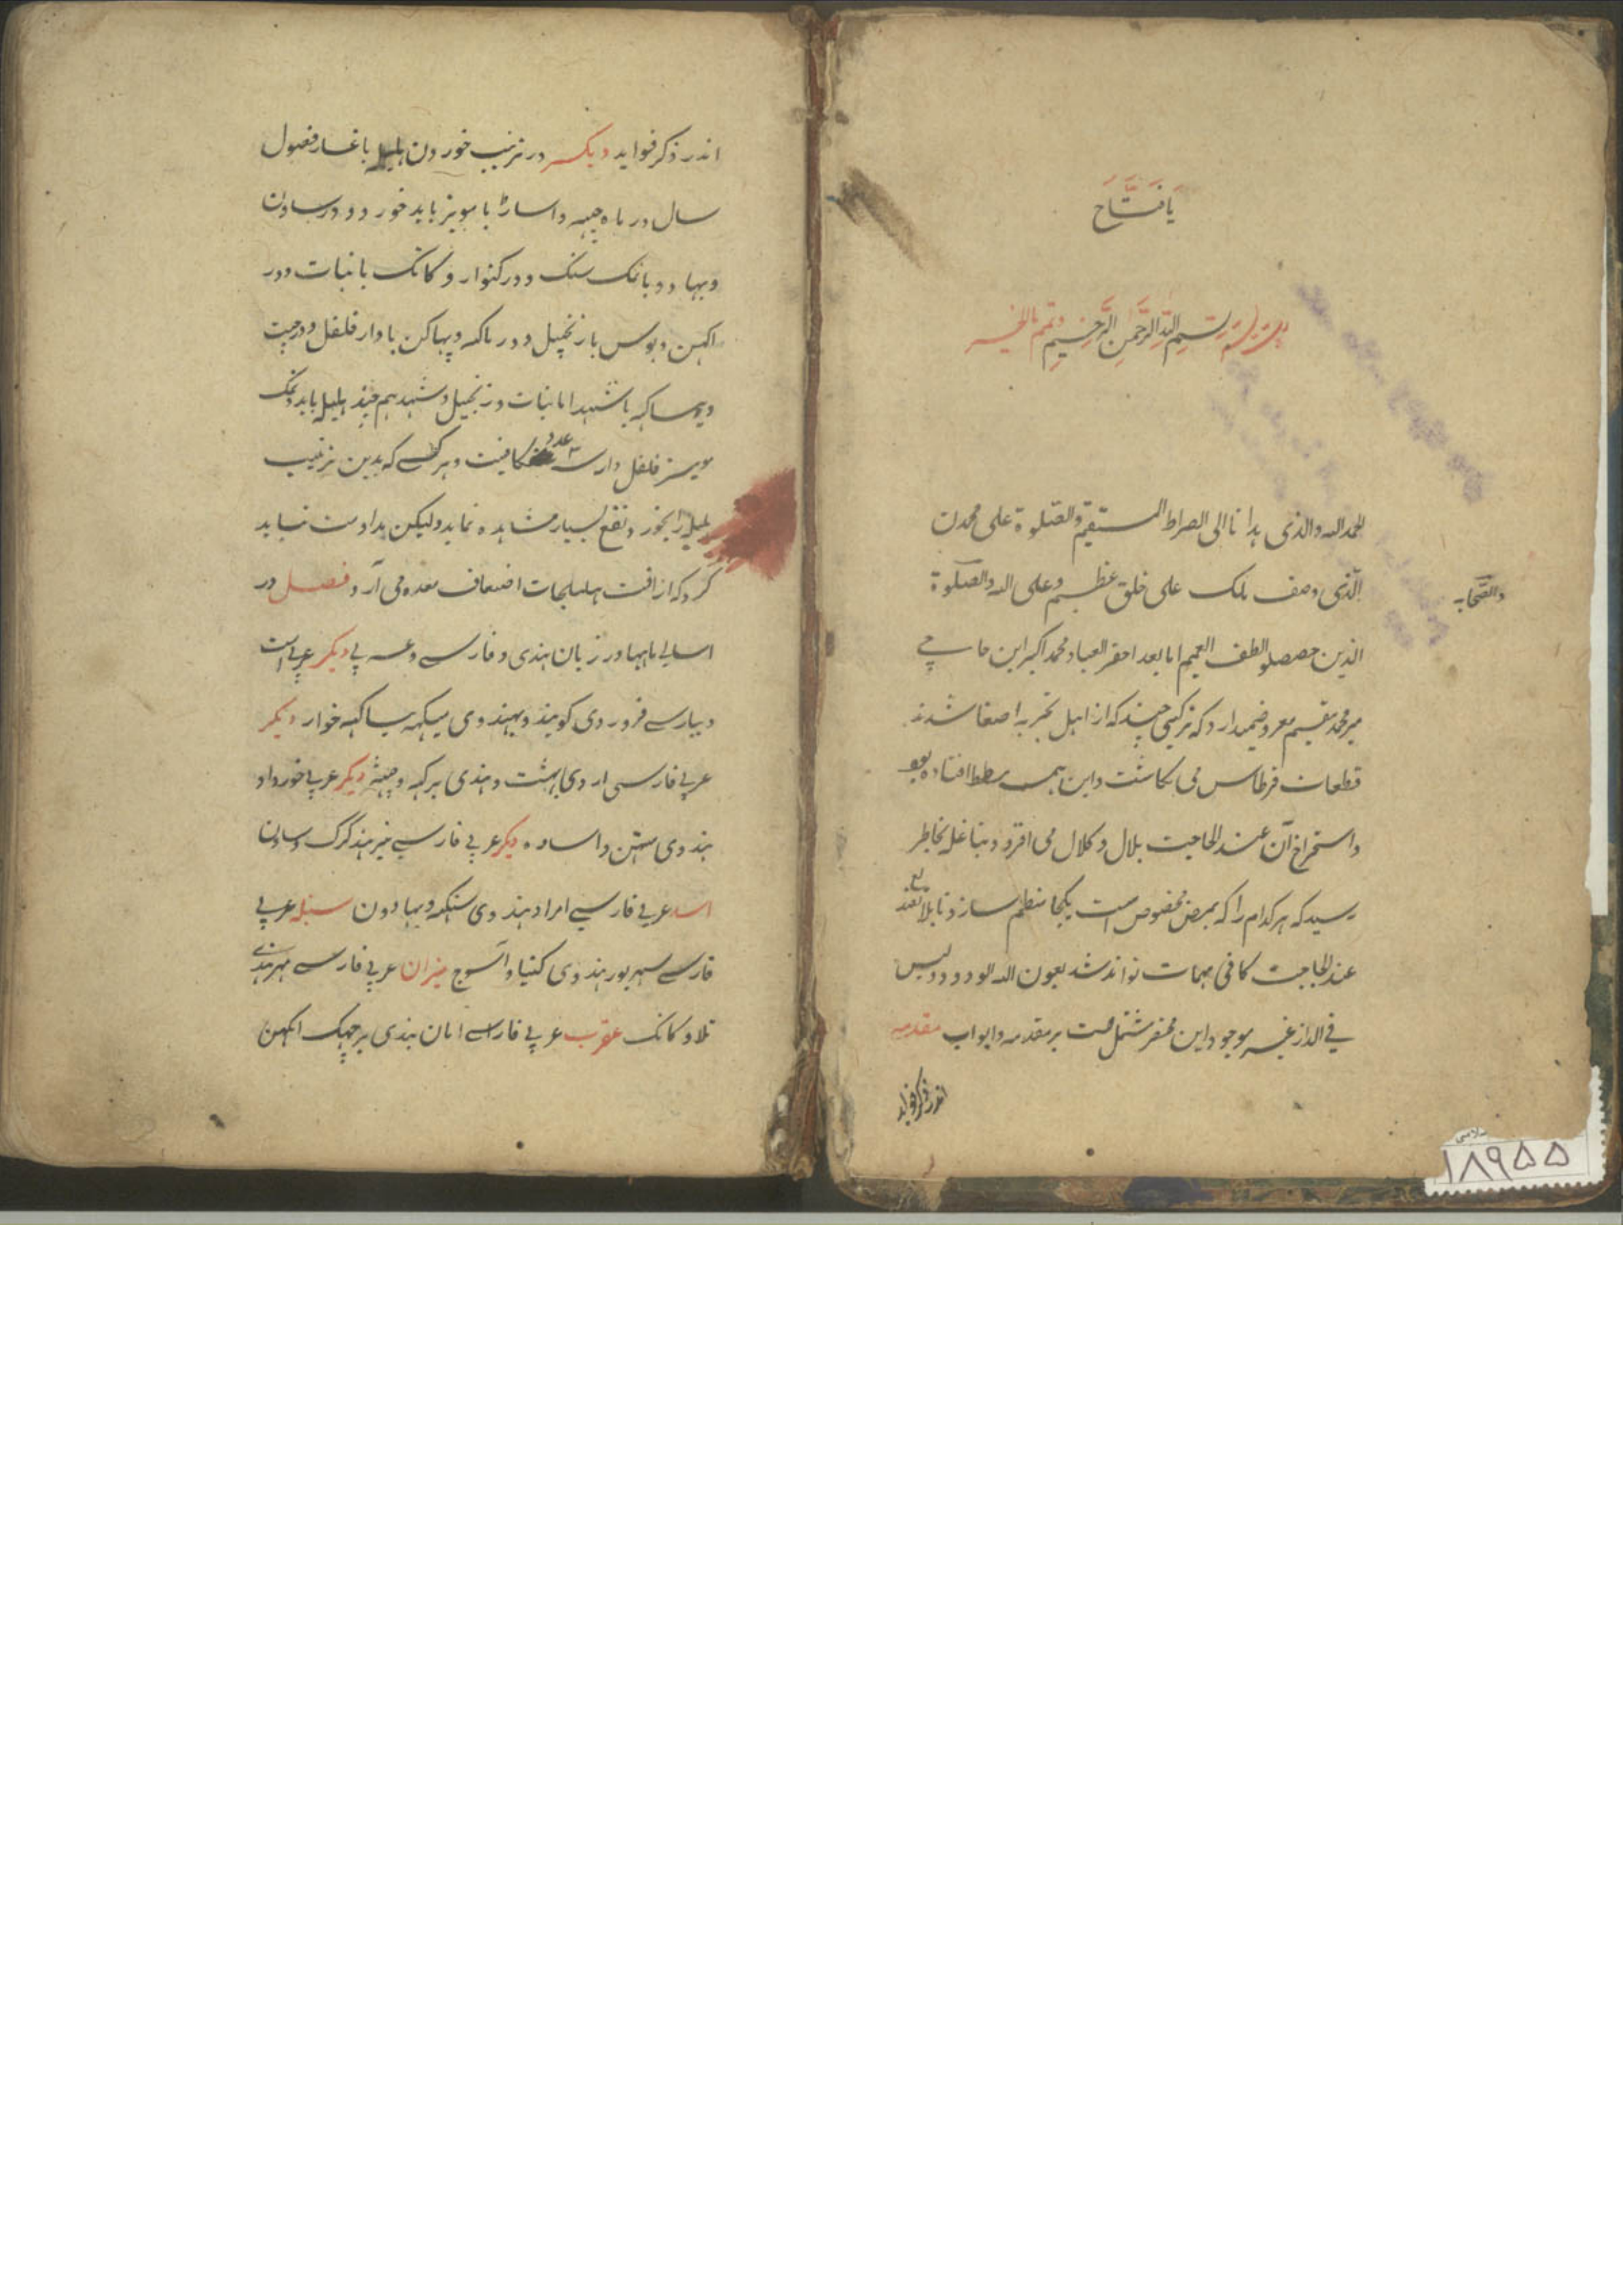 یا فتاح
رب یسر بسم الله الرحمن الرحیم وتمم بالخیر
الحمد لله والذی هدانا الی الصراط المستقیم والصلوة علی محمدن
الذی وصف بانک علی خلق عظیم وعلی اله والصلوة
والصحابه
الذین حصصلو الطف العمیم اما بعد احقر العباد محمد اکبر ابن حاجی
میر محمد مقیم معروض میدارد که ترکیبی چند که از اهل تجربه اصغا شدند
قطعات قرطاس می نکاشت واین همه افتاده بود
واستخراج آن عند الحاجت بملال و کلال می افزود بناعلیه بخاطر
رسید که هر کدام را که بمرض مخصوص است یکجا منتظم سازد تا بلا
عند الحاجت کافی مهمات تواند شد بعون الله الودود ولیس
فی الدار غیره موجود این مختصر مشتمل است بر مقدمه و ابواب مقدمه
اندر ذکر فواید
اندر ذکر فواید دیگر در ترتیب خوردن هلیله باعتبار فصول
سال در ماه جیته و اساڑا با مویز باید خورد و در ساون
وبهادو با نمک سنگ و در کنوار و کاتک با نبات و در
اکهن و پوس با زنجبیل و در ماکهه و پهاکن با دار فلفل و در چیت
وبیساکه با شهد اما نبات و زنجبیل و شهد هم چند هلیله باید و نمک
مویز فلفل دار سه عدد کافیست و هر کسی که بدین ترتیب
هلیله را بخورد نفع بسیار مشاهده نماید ولیکن مداومت نباید
کرد که از افت هلیلجات اضعاف معده می آرد فصل در
اسامی ماهها در زبان هندی و فارسی و عربی دیگر عربی است
وبپارسی فروردی کویند و بهندوی میکهه بیساکهه خوار دیگر
عربی فارسی اردی بهشت و هندی برکهه و جیته دیگر عربی خورداد
هندوی متهن و اساده دیگر عربی فارسی تیر هند کرک و ساون
اسد عربی فارسی امراد هندوی سنکهه و بهادون سنبله عربی
فارسی شهریور هندوی کنیا و آسوج میزان عربی فارسی مهر هندی
تلا و کاتک عقرب عربی فارسی ابان هندی برچهک اکهن
۱۸۹۵۵